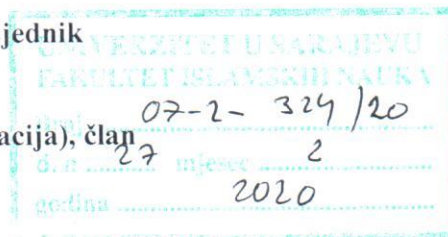 jednik
UNIVERZITET U SARAJEVU
FAKULTET ISLAMSKIH NAUKA
Broj 07-2- 324/20
acija), član
d. n 27 mjesec 2
godina 2020